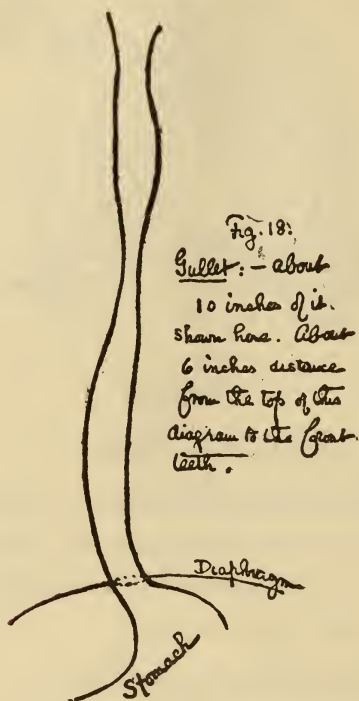 Fig. 18:
Gullet: – about
10 inches of it.
shown here. About
6 inches distance
from the top of this
diagram to the front
teeth.
Diaphragm
Stomach